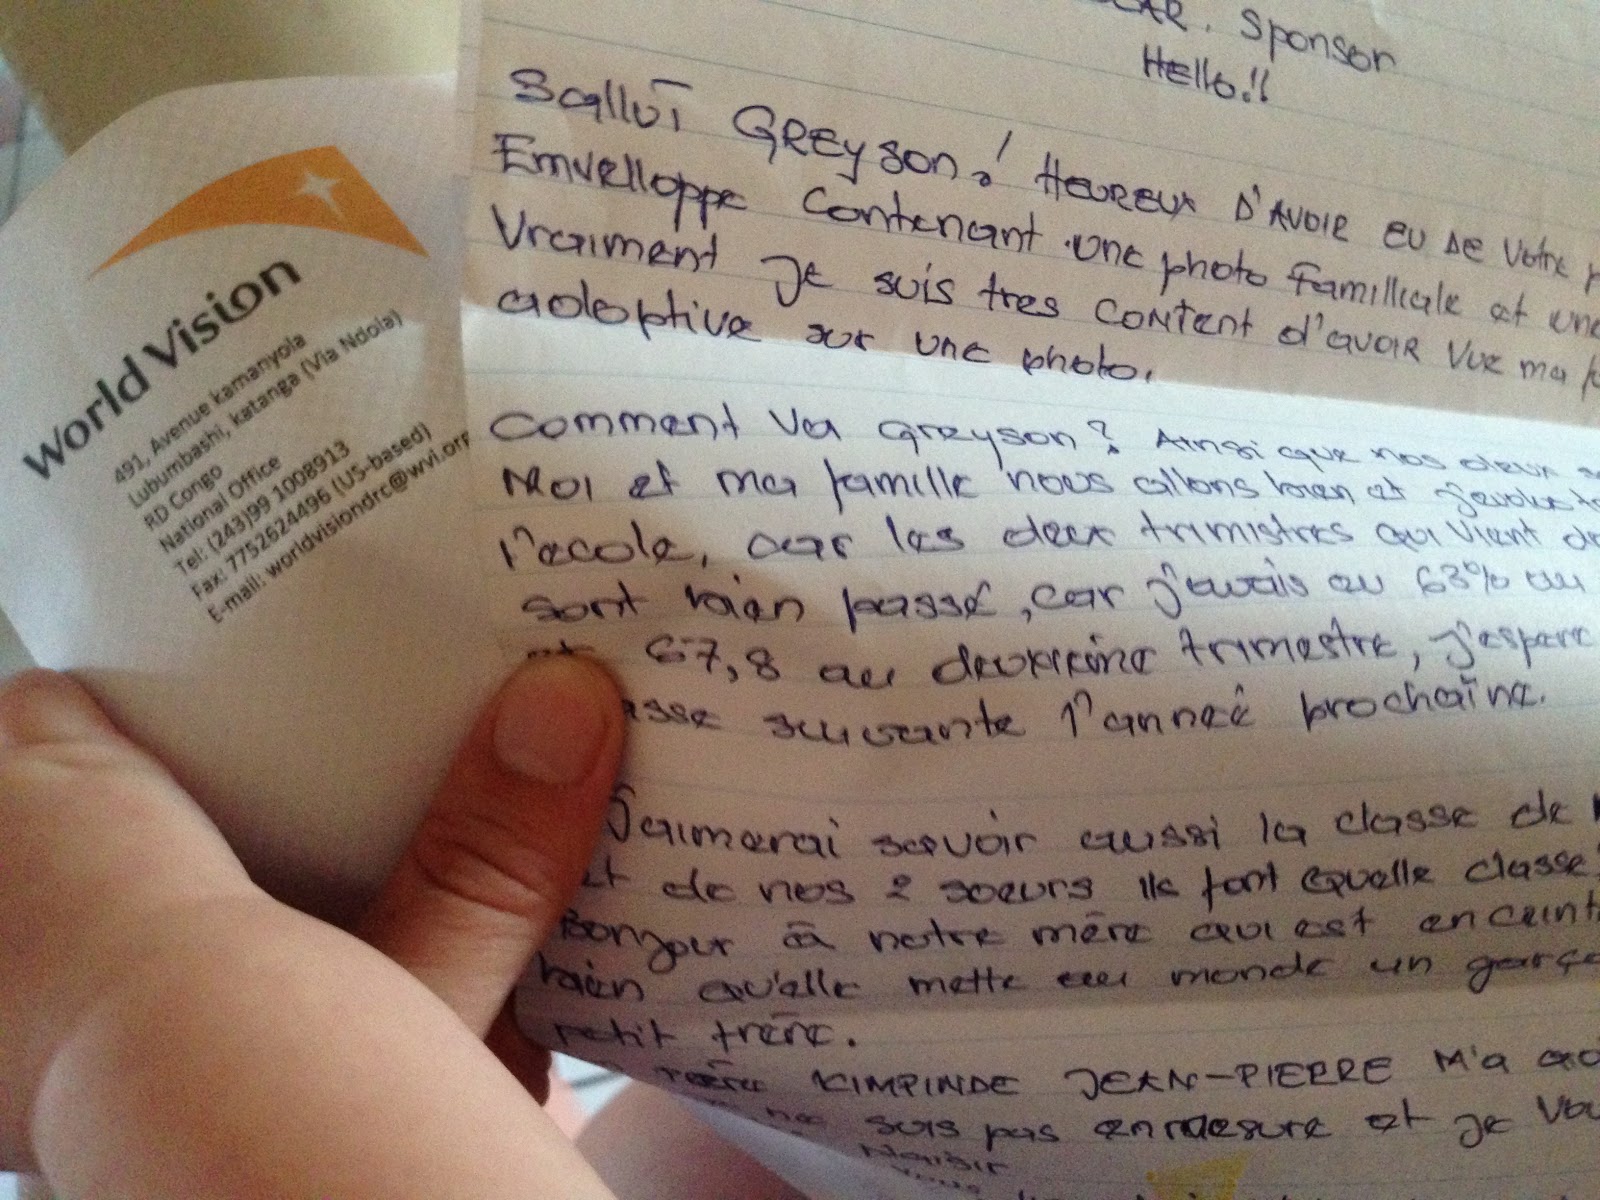 World Vision
491, Avenue kamanyola
Lubumbashi, katanga (Via Ndola)
RD Congo
National Office
Tel: (243)99 1008913
Fax: 7752624496 (US-based)
E-mail: worldvisiondrc@wvi.org
Sponsor
Hello!!
Salluī GREyson! HEUREUX D'AVOIR EU DE Votre
Emvelloppe contenant une photo familliale et une
Vraiment Je suis tres content d'avoir vue ma
adoptive sur une photo.
Comment va Greyson? Ainsi que nos deux
Moi et ma famille nous allons bien et j'evolue
l'ecole, car les deux trimistres qui vient
sont bien passé, car j'avais eu 63% au
et 67,8 au deuxieme trimestre, j'espere
suivante l'anneé prochaïne.
J'aimerai savoir aussi la classe de
et de nos 2 soeurs ils font Quelle classe
Bonjour à notre mère qui est enceint
bien qu'elle mette au monde un garço
petit frère.
KIMPINDE JEAN-PIERRE M'a
ne suis pas enmesure et je Vou